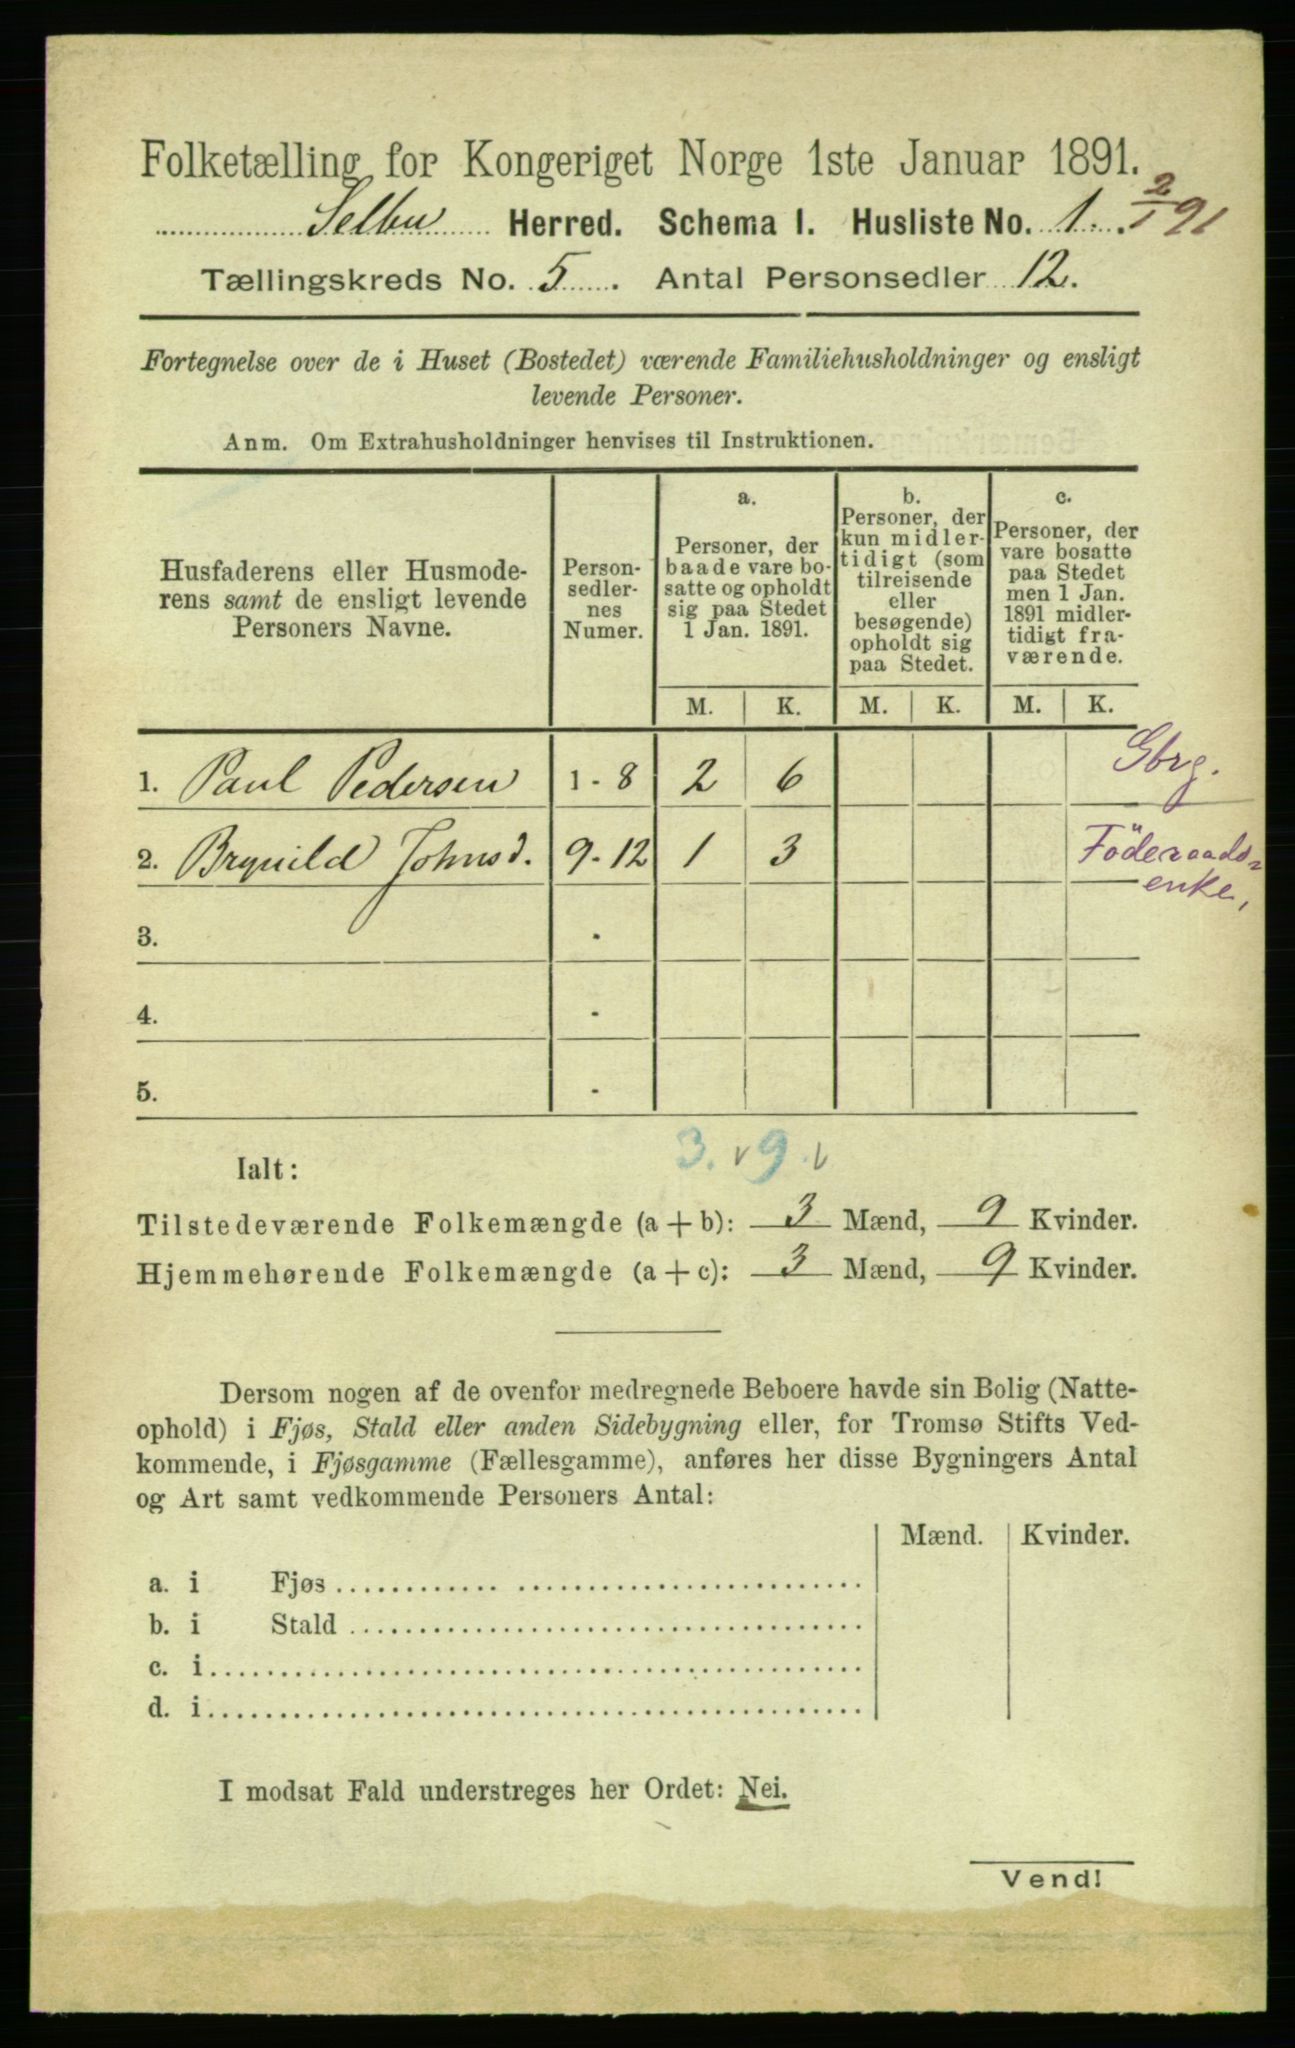 Folketælling for Kongeriget Norge 1ste Januar 1891.
Selbu Herred. Schema I. Husliste No. 1. 2/1 91
Tællingskreds No. 5. Antal Personsedler 12.
Fortegnelse over de i Huset (Bostedet) værende Familiehusholdninger og ensligt
levende Personer.
Anm. Om Extrahusholdninger henvises til Instruktionen.
Husfaderens eller Husmode-
rens samt de ensligt levende
Personers Navne.
Person-
sedler-
nes
Numer.
a.
Personer, der
baade vare bo-
satte og opholdt
sig paa Stedet
1 Jan. 1891.
b.
Personer, der
kun midler-
tidigt (som
tilreisende
eller
besøgende)
opholdt sig
paa Stedet.
c.
Personer, der
vare bosatte
paa Stedet
men 1 Jan.
1891 midler-
tidigt fra-
værende.
M. K. M. K. M. K.
1. Paul Pedersen 1 - 8 2 6 Gbrg.
2. Brynild Johnsd. 9 - 12 1 3 Föderaads-
enke,
3. -
4. -
5. -
3. v 9. v
Ialt:
Tilstedeværende Folkemængde (a + b): 3 Mænd, 9 Kvinder.
Hjemmehørende Folkemængde (a + c): 3 Mænd, 9 Kvinder.
Dersom nogen af de ovenfor medregnede Beboere havde sin Bolig (Natte-
ophold) i Fjøs, Stald eller anden Sidebygning eller, for Tromsø Stifts Ved-
kommende, i Fjøsgamme (Fællesgamme), anføres her disse Bygningers Antal
og Art samt vedkommende Personers Antal:
Mænd. Kvinder.
a. i Fjøs
b. i Stald
c. i
d. i
I modsat Fald understreges her Ordet: Nei.
Vend!